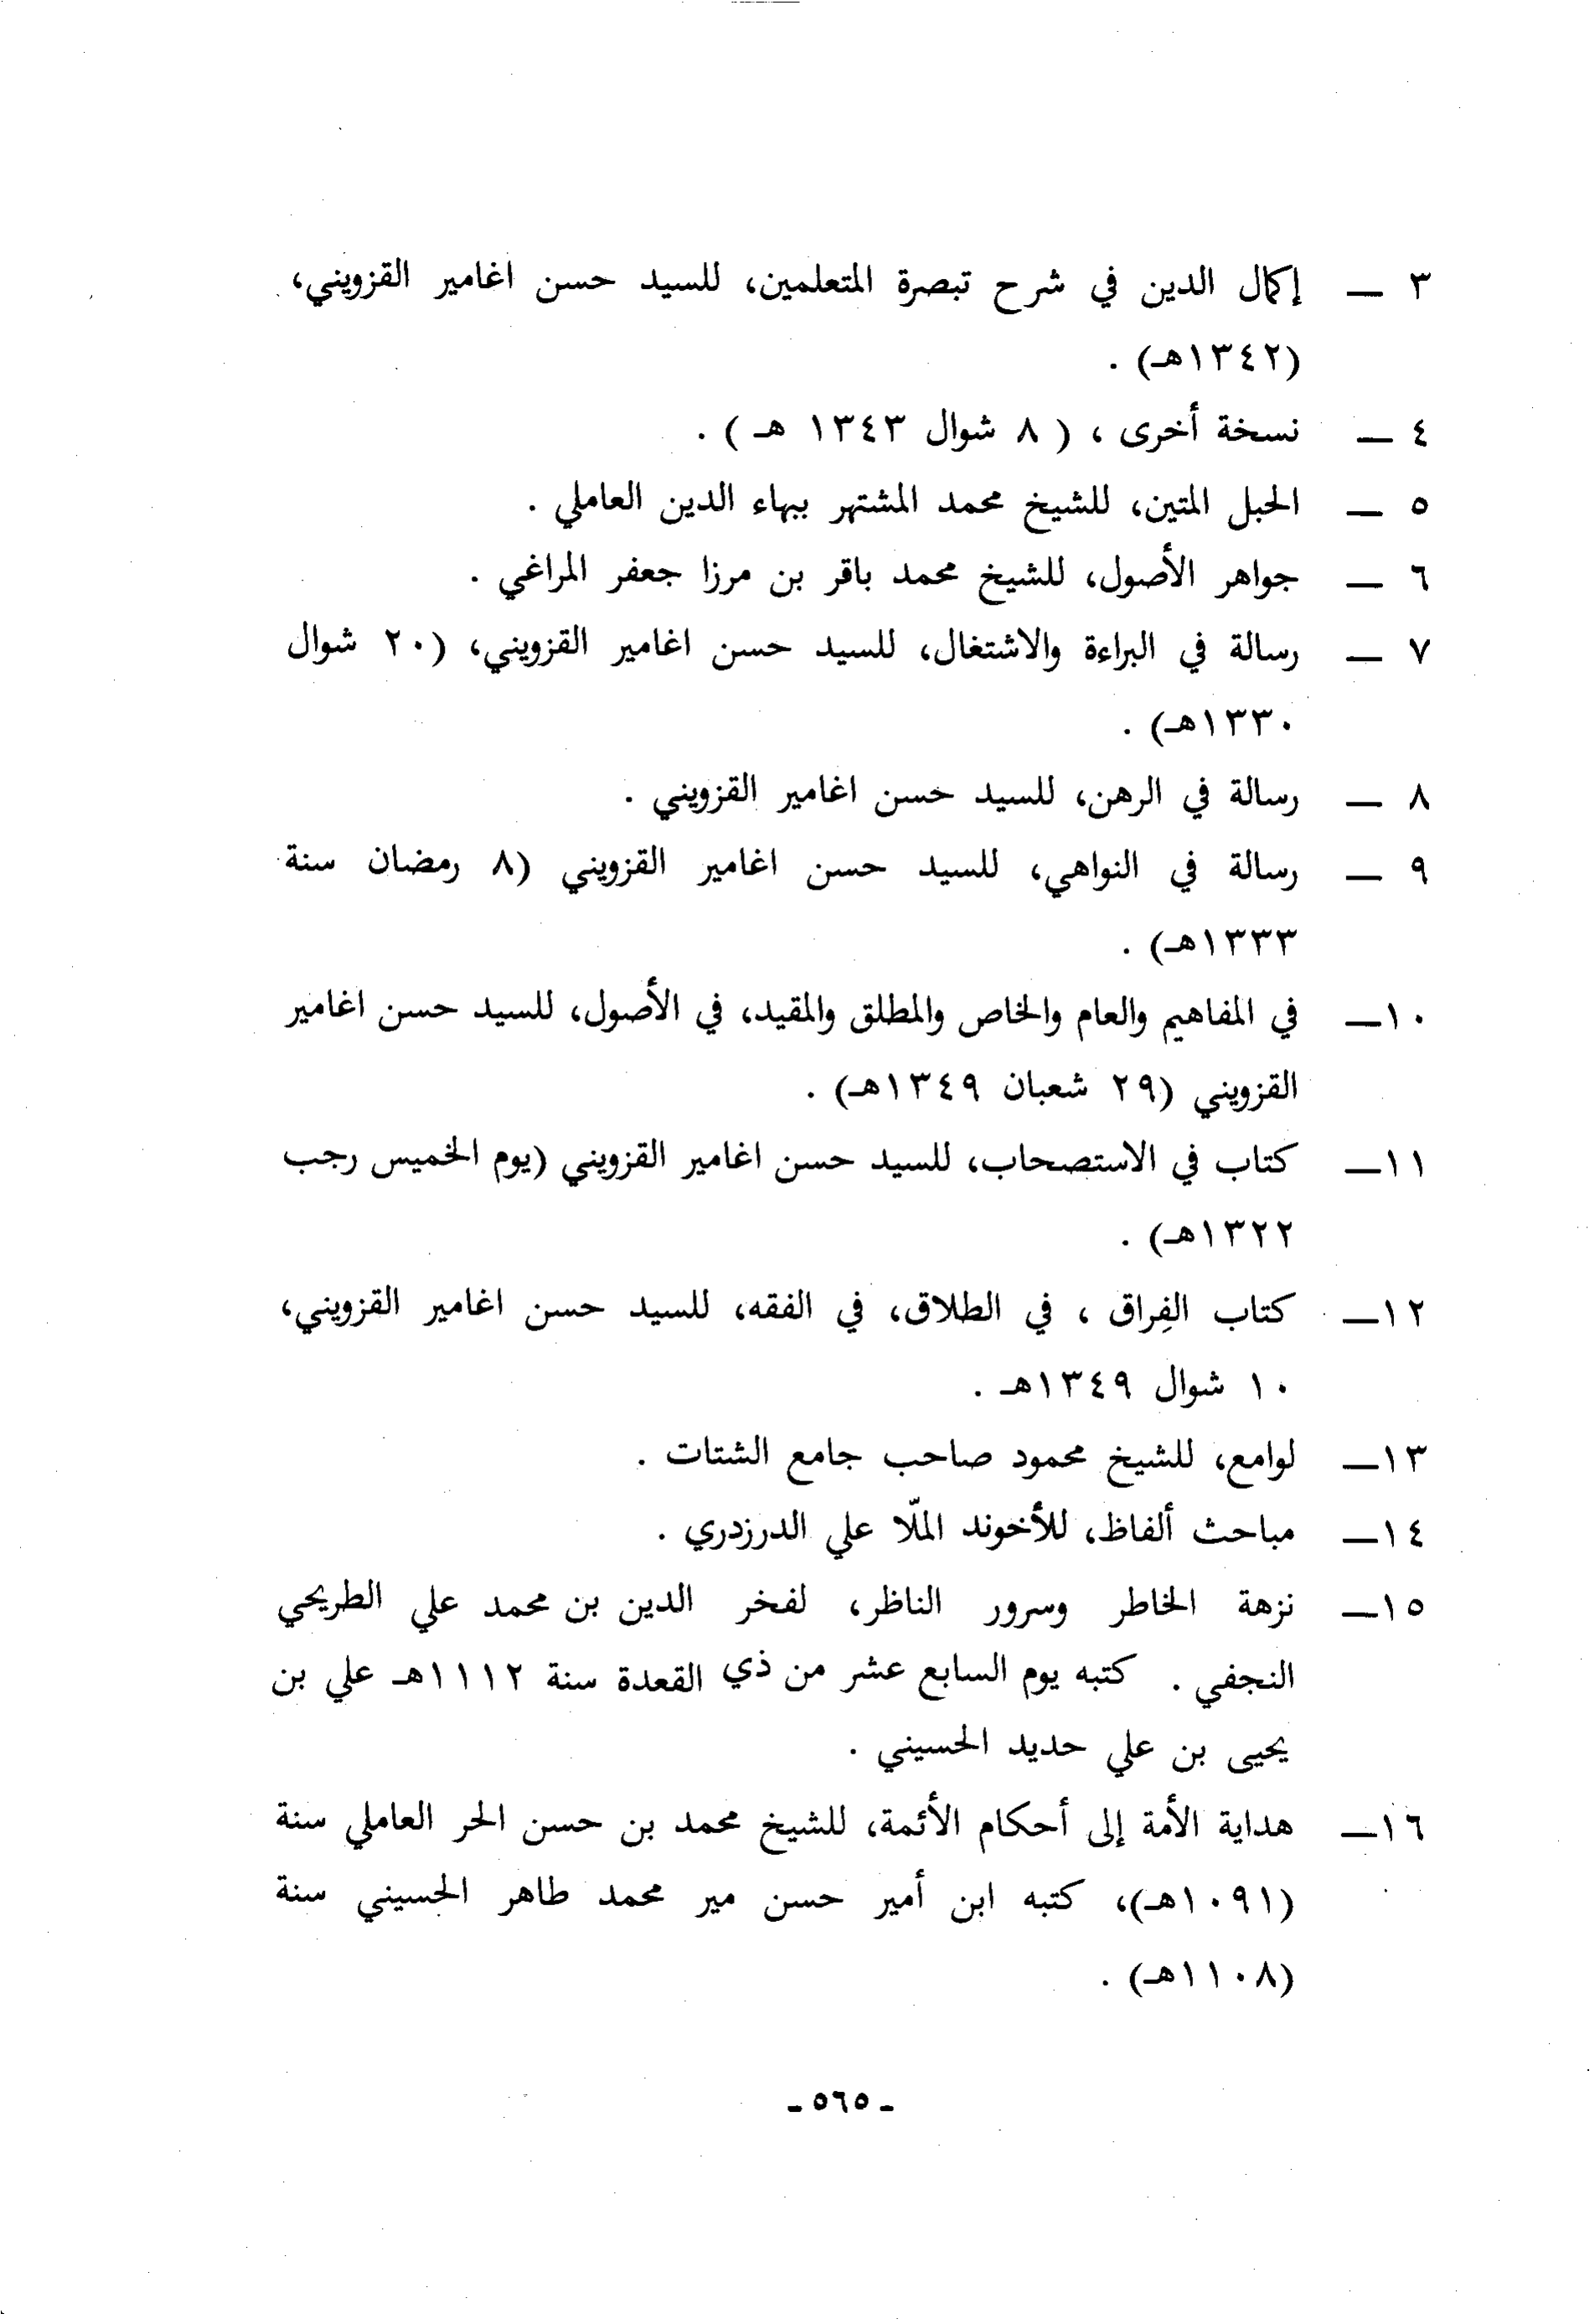 ٣ — إكمال الدين في شرح تبصرة المتعلمين، للسيد حسن اغامير القزويني،
(١٣٤٢هـ) .
٤ — نسخة أخرى ، ( ٨ شوال ١٣٤٣ هـ ) .
٥ — الحبل المتين، للشيخ محمد المشتهر ببهاء الدين العاملي .
٦ — جواهر الأصول، للشيخ محمد باقر بن مرزا جعفر المراغي .
٧ — رسالة في البراءة والاشتغال، للسيد حسن اغامير القزويني، (٢٠ شوال
١٣٣٠هـ) .
٨ — رسالة في الرهن، للسيد حسن اغامير القزويني .
٩ — رسالة في النواهي، للسيد حسن اغامير القزويني (٨ رمضان سنة
١٣٣٣هـ) .
١٠— في المفاهيم والعام والخاص والمطلق والمقيد، في الأصول، للسيد حسن اغامير
القزويني (٢٩ شعبان ١٣٤٩هـ) .
١١— كتاب في الاستصحاب، للسيد حسن اغامير القزويني (يوم الخميس رجب
١٣٢٢هـ) .
١٢— كتاب الفِراق ، في الطلاق، في الفقه، للسيد حسن اغامير القزويني،
١٠ شوال ١٣٤٩هـ .
١٣— لوامع، للشيخ محمود صاحب جامع الشتات .
١٤— مباحث ألفاظ، للأخوند الملّا علي الدرزدري .
١٥— نزهة الخاطر وسرور الناظر، لفخر الدين بن محمد علي الطريحي
النجفي . كتبه يوم السابع عشر من ذي القعدة سنة ١١١٢هـ علي بن
يحيى بن علي حديد الحسيني .
١٦— هداية الأمة إلى أحكام الأئمة، للشيخ محمد بن حسن الحر العاملي سنة
(١٠٩١هـ)، كتبه ابن أمير حسن مير محمد طاهر الحسيني سنة
(١١٠٨هـ) .
- ٥٦٥ -